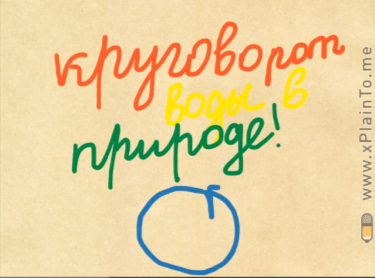 круговорот
воды в
природе!
www.xPlainTo.me